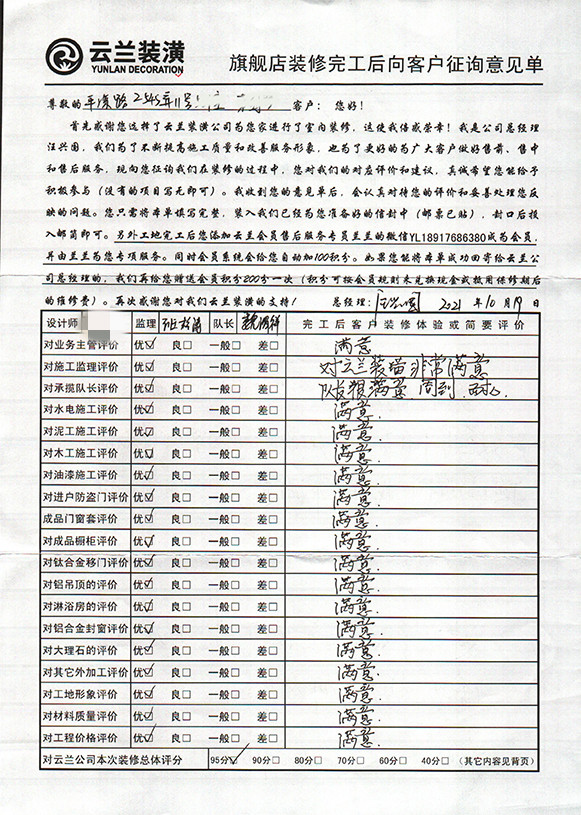 云兰装潢
YUNLAN DECORATION
旗舰店装修完工后向客户征询意见单
尊敬的 平凉路2545弄11号 客户：您好！
首先感谢您选择了云兰装潢公司为您家进行了室内装修，这使我倍感荣幸！我是公司总经理
汪兴国，我们为了不断提高施工质量和改善服务形象，也为了更好的为广大客户做好售前、售中
和售后服务，现向您征询我们在装修的过程中，您对我们的对应评价和建议，真诚希望您能给予
积极参与（没有的项目写无即可）。我收到您的意见单后，会认真对待您的评价和妥善处理您反
映的问题。您只需将本单填写完整，装入我们已经为您准备好的信封中（邮票已贴），封口后投
入邮筒即可。另外工地完工后您添加云兰会员售后服务专员兰兰的微信YL18917686380成为会员，
并由兰兰为您专项服务。同时会员系统会给您自动加100积分。如果您能将本单成功回寄给云兰公
司总经理的，我们再给您赠送会员积分200分一次（积分可按会员规则来兑换现金或抵用保修期后
的维修费）。再次感谢您对我们云兰装潢的支持！ 总经理： 2021 年 10 月 19 日
设计师 监理 队长 完工后客户装修体验或简要评价
对业务主管评价 优☑ 良□ 一般□ 差□ 满意
对施工监理评价 优☑ 良□ 一般□ 差□ 对云兰装潢非常满意
对承揽队长评价 优☑ 良□ 一般□ 差□ 队长很满意 周到 耐心.
对水电施工评价 优☑ 良□ 一般□ 差□ 满意.
对泥工施工评价 优☑ 良□ 一般□ 差□ 满意.
对木工施工评价 优☑ 良□ 一般□ 差□ 满意.
对油漆施工评价 优☑ 良□ 一般□ 差□ 满意.
对进户防盗门评价 优☑ 良□ 一般□ 差□ 满意.
成品门窗套评价 优☑ 良□ 一般□ 差□ 满意.
对成品橱柜评价 优☑ 良□ 一般□ 差□ 满意.
对钛合金移门评价 优☑ 良□ 一般□ 差□ 满意.
对铝吊顶的评价 优☑ 良□ 一般□ 差□ 满意.
对淋浴房的评价 优☑ 良□ 一般□ 差□ 满意.
对铝合金封窗评价 优☑ 良□ 一般□ 差□ 满意.
对大理石的评价 优☑ 良□ 一般□ 差□ 满意.
对其它外加工评价 优☑ 良□ 一般□ 差□ 满意.
对工地形象评价 优☑ 良□ 一般□ 差□ 满意.
对材料质量评价 优☑ 良□ 一般□ 差□ 满意.
对工程价格评价 优☑ 良□ 一般□ 差□ 满意.
对云兰公司本次装修总体评分 95分☑ 90分□ 80分□ 70分□ 60分□ 40分□ （其它内容见背页）